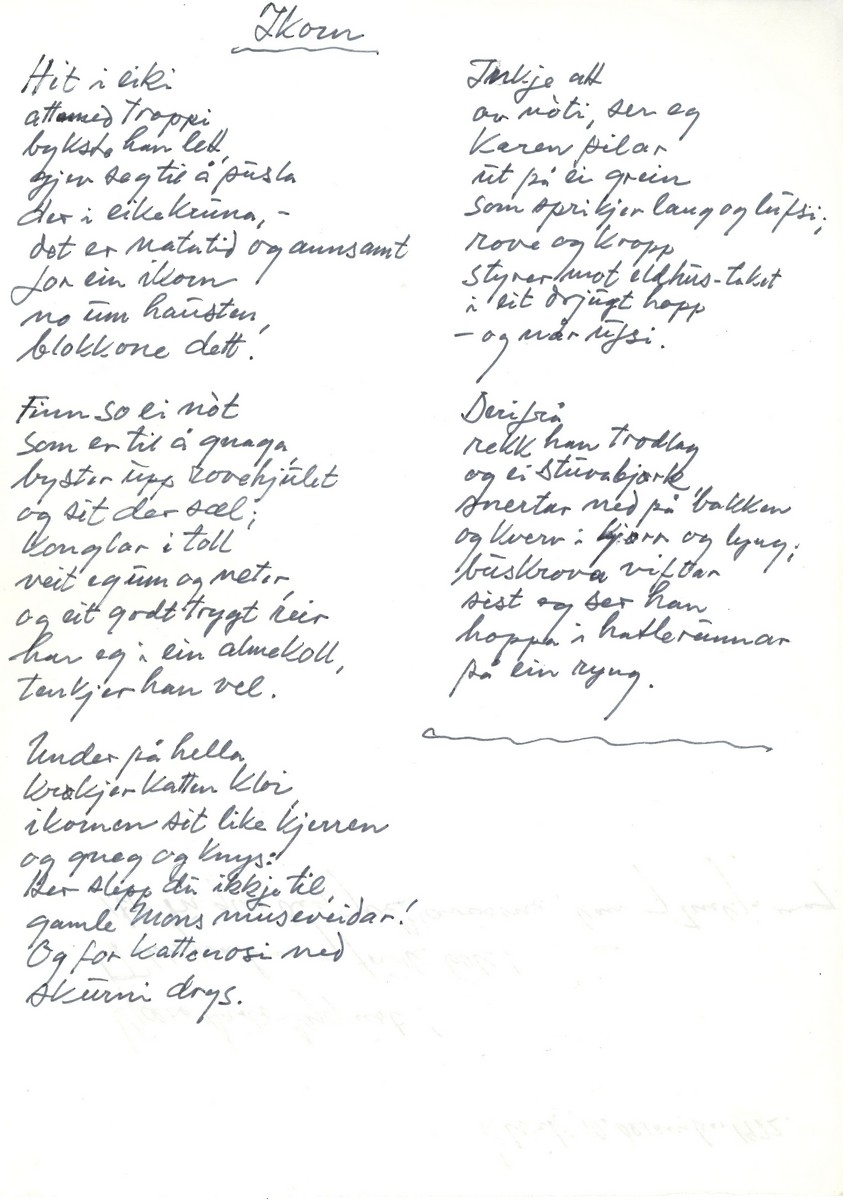 Ikorn
Hit i eiki
attmed troppi
bykste han lett,
gjev seg til å pusla
der i eikekruna, -
det er matatid og annsamt
for ein ikorn
no um hausten,
blokkone dett.
Finn so ei nòt
som er til å gnaga,
byster upp rovehjulet
og sit der sæl;
konglar i toll
veit eg um og neter,
og eit godt trygt reir
har eg i ein almekoll,
tenkjer han vel.
Under på hella
krøkjer katten klôi,
ikornen sit like kjerren
og gneg og knys:
Her slepp du ikkje til,
gamle Mons museveidar!
Og for kattenosi ned
skurni drys.
Inkje att
av nòti, ser eg
karen pilar
ut på ei grein
som sprikjer lang og lufsi;
rove og kropp
styrer mot eldhus-taket
i eit drjugt hopp
- og når ufsi.
Derifrå
rekk han trodlag
og ei stuvabjørk,
snertar ned på bakken
og kverv i kjørr og lyng;
buskrova viftar
sist eg ser han
hoppa i hatlerunnar
på ein ryng.